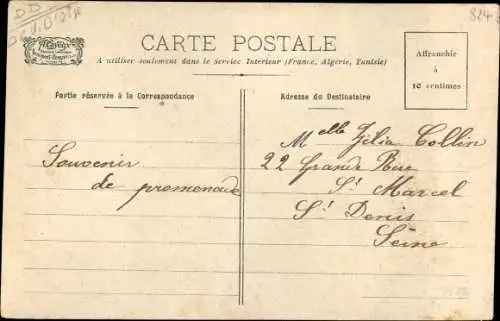 CARTE POSTALE
A utiliser seulement dans le Service Intérieur (France, Algérie, Tunisie)
Affranchie
à
10 centimes
Partie réservée à la Correspondance
Souvenir
de promenade
Adresse du Destinataire
Melle Zélia Collin
22 Grande Rue
St Marcel
St Denis
Seine